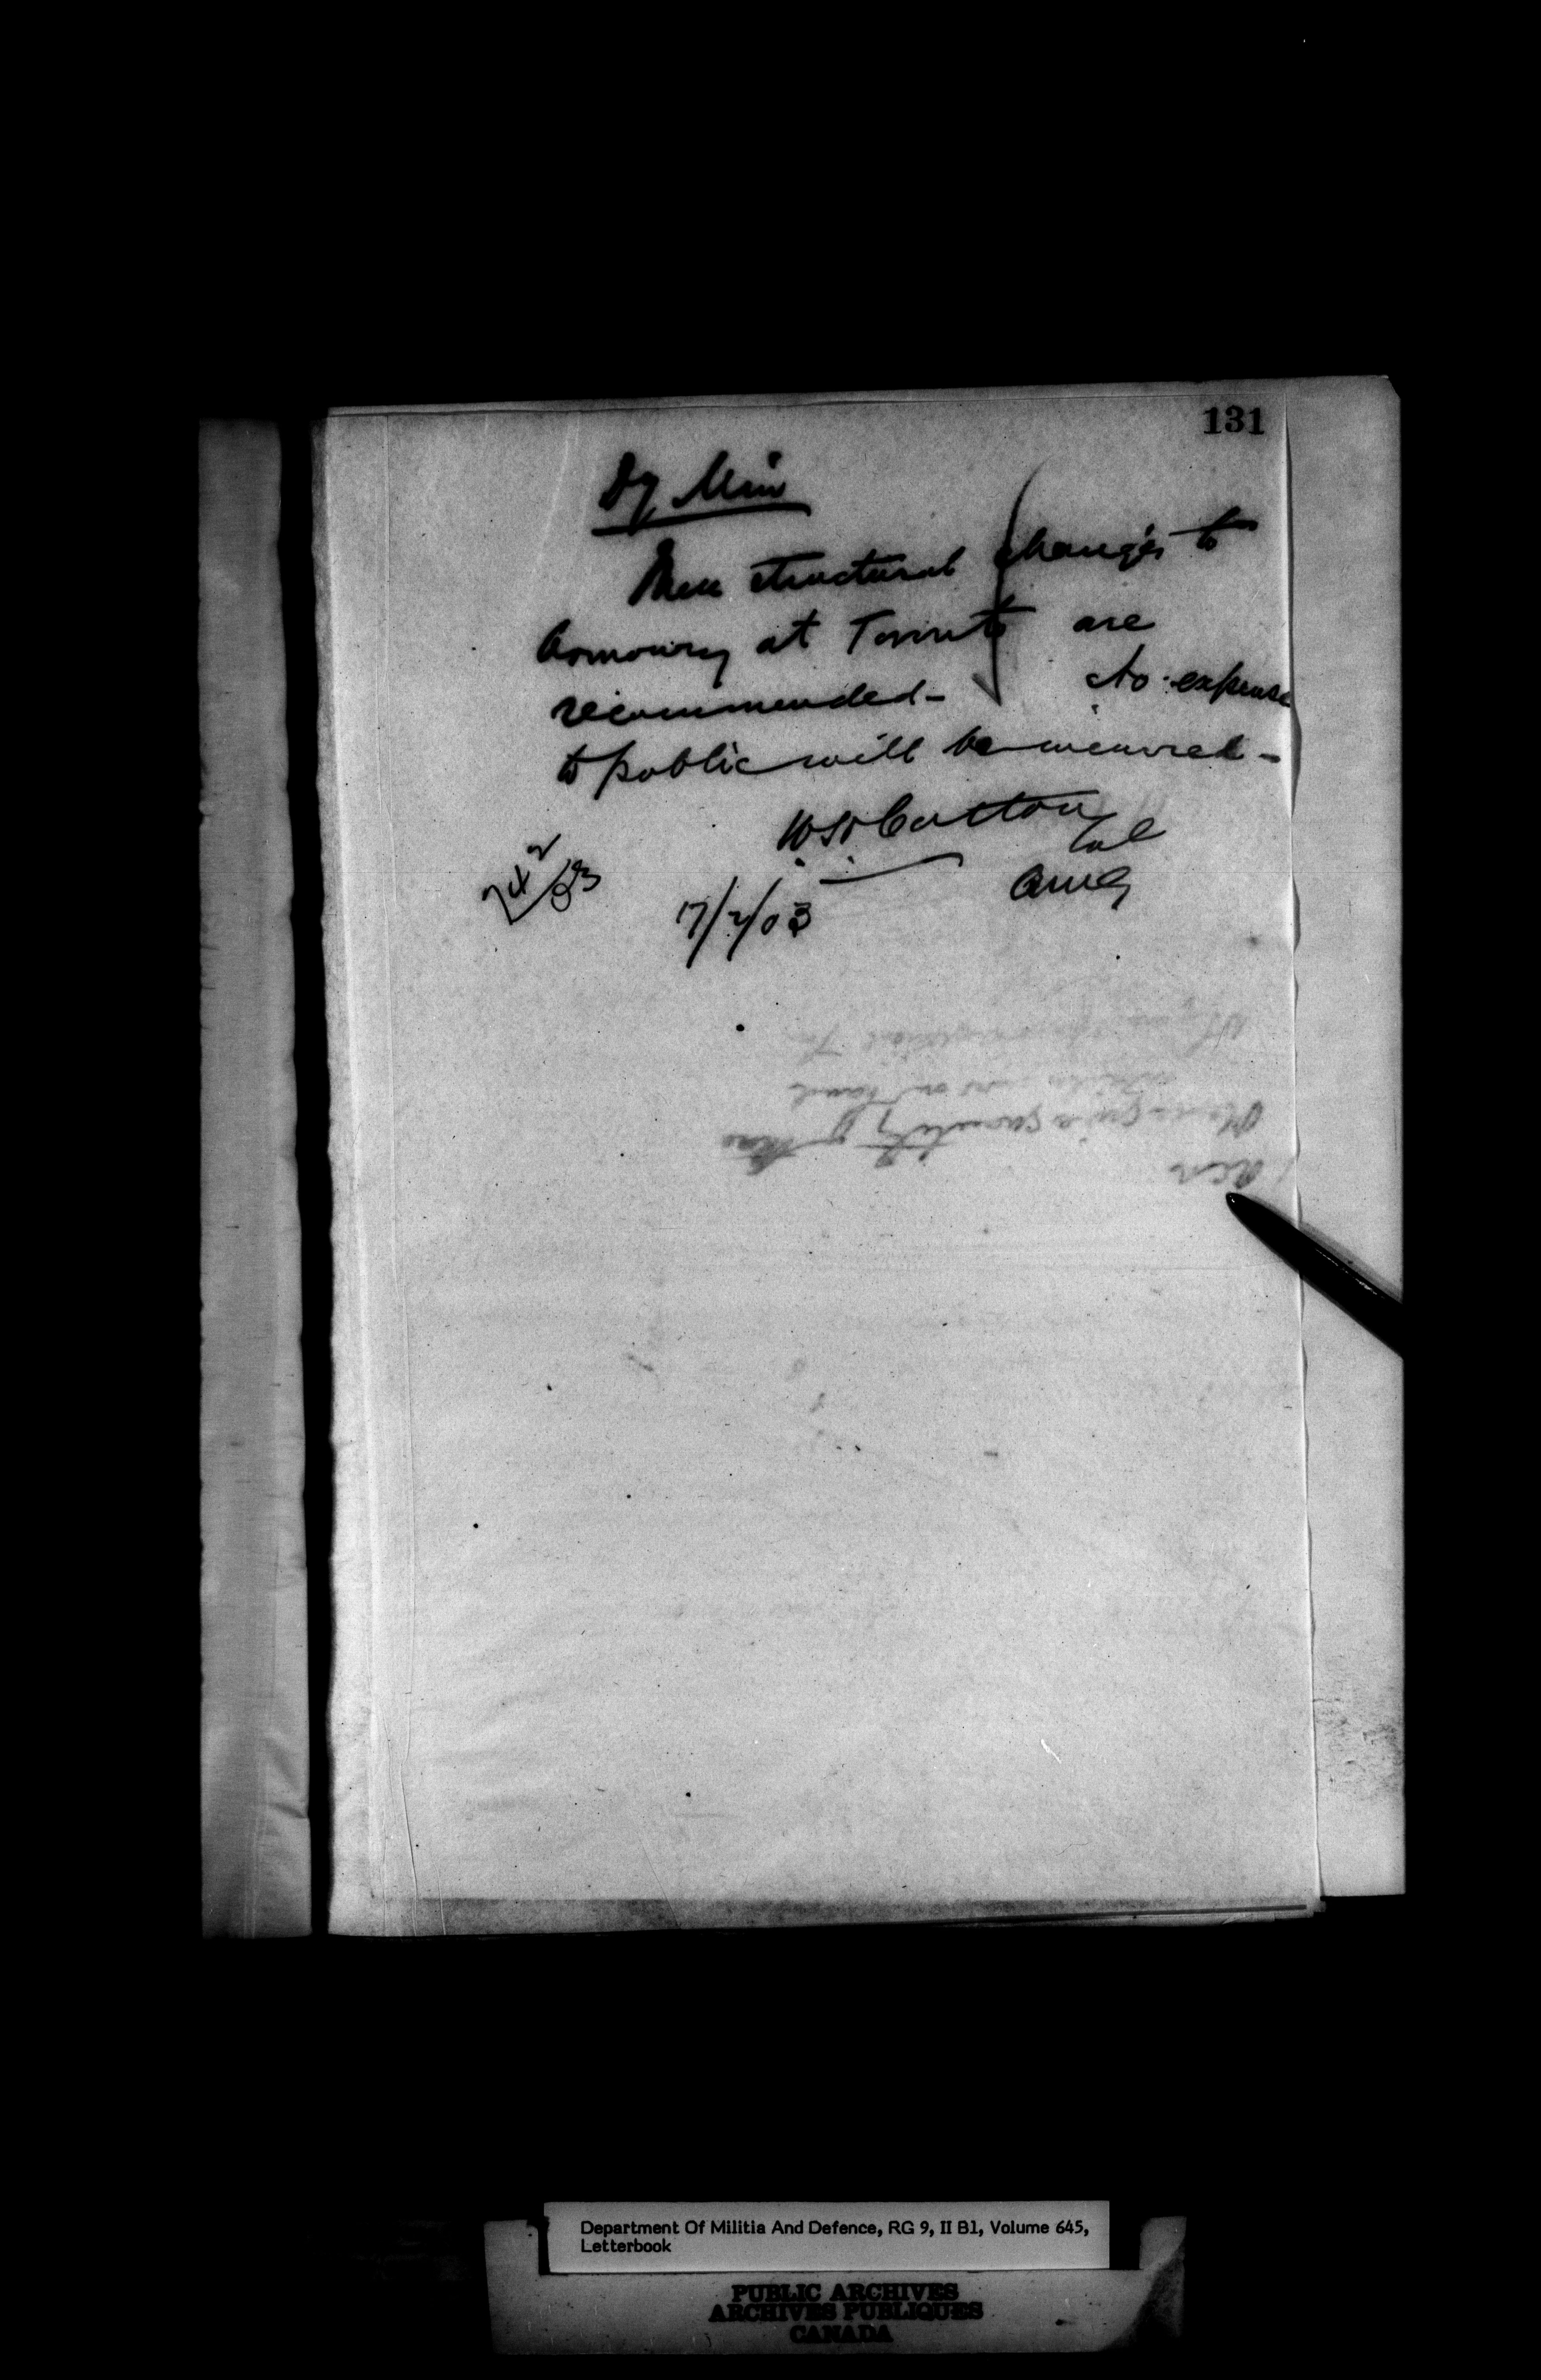 131
Dy Min
These structural changes to
Armoury at Toronto are
recommended - No expense
to public will be incurred -
WH Cotton
Col
QMG
17/2/03
Department Of Militia And Defence, RG 9, II B1, Volume 645,
Letterbook
PUBLIC ARCHIVES
ARCHIVES PUBLIQUES
CANADA